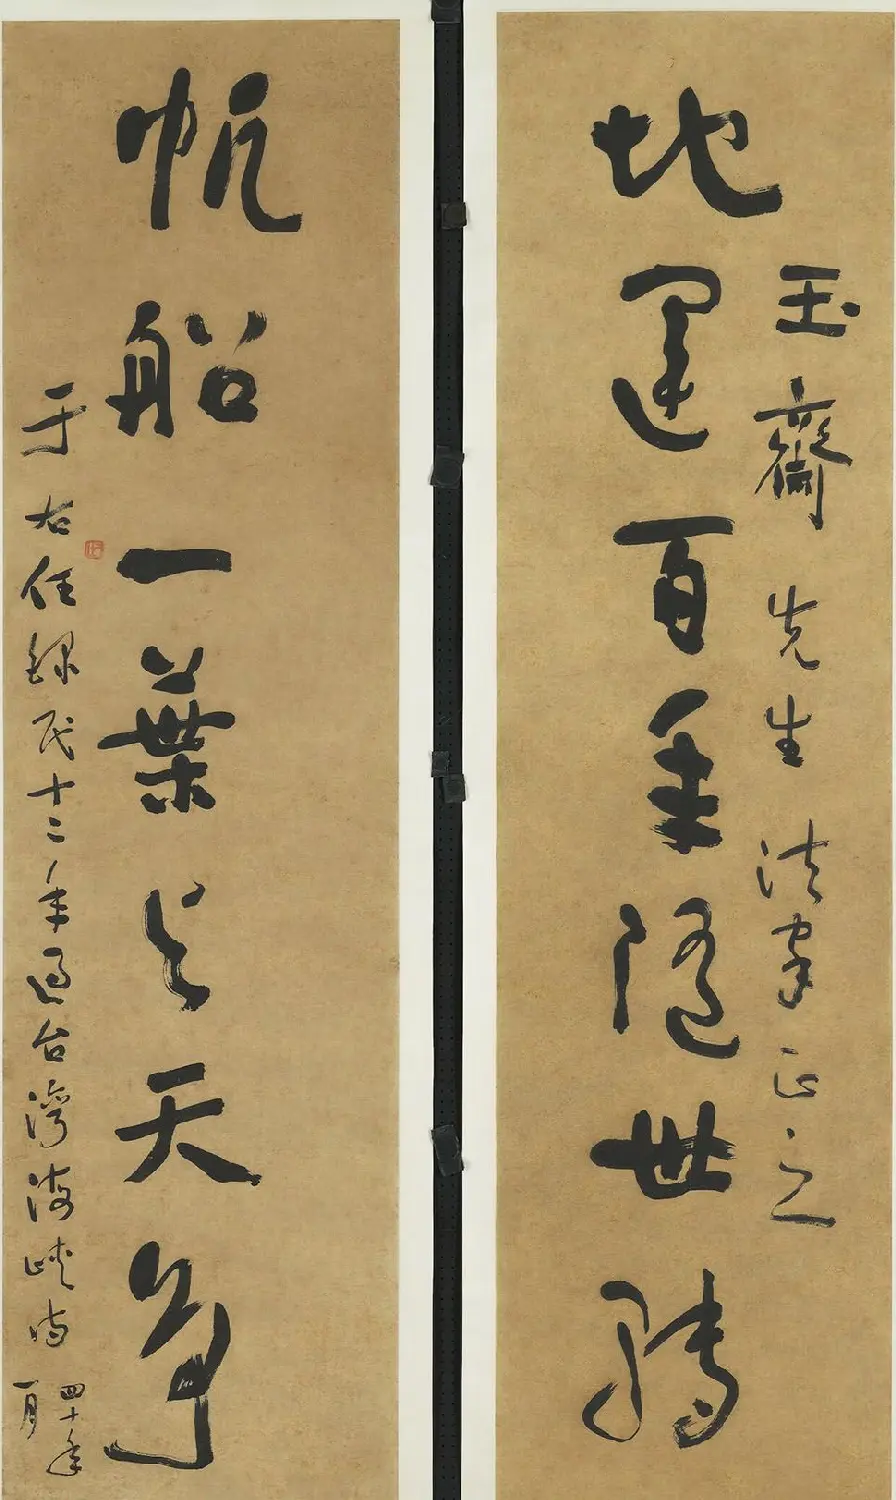 玉齋先生法家正之
地運百年隨世轉
帆船一葉与天爭
于右任錄民十二年過台灣海峽詩
四十年
一月